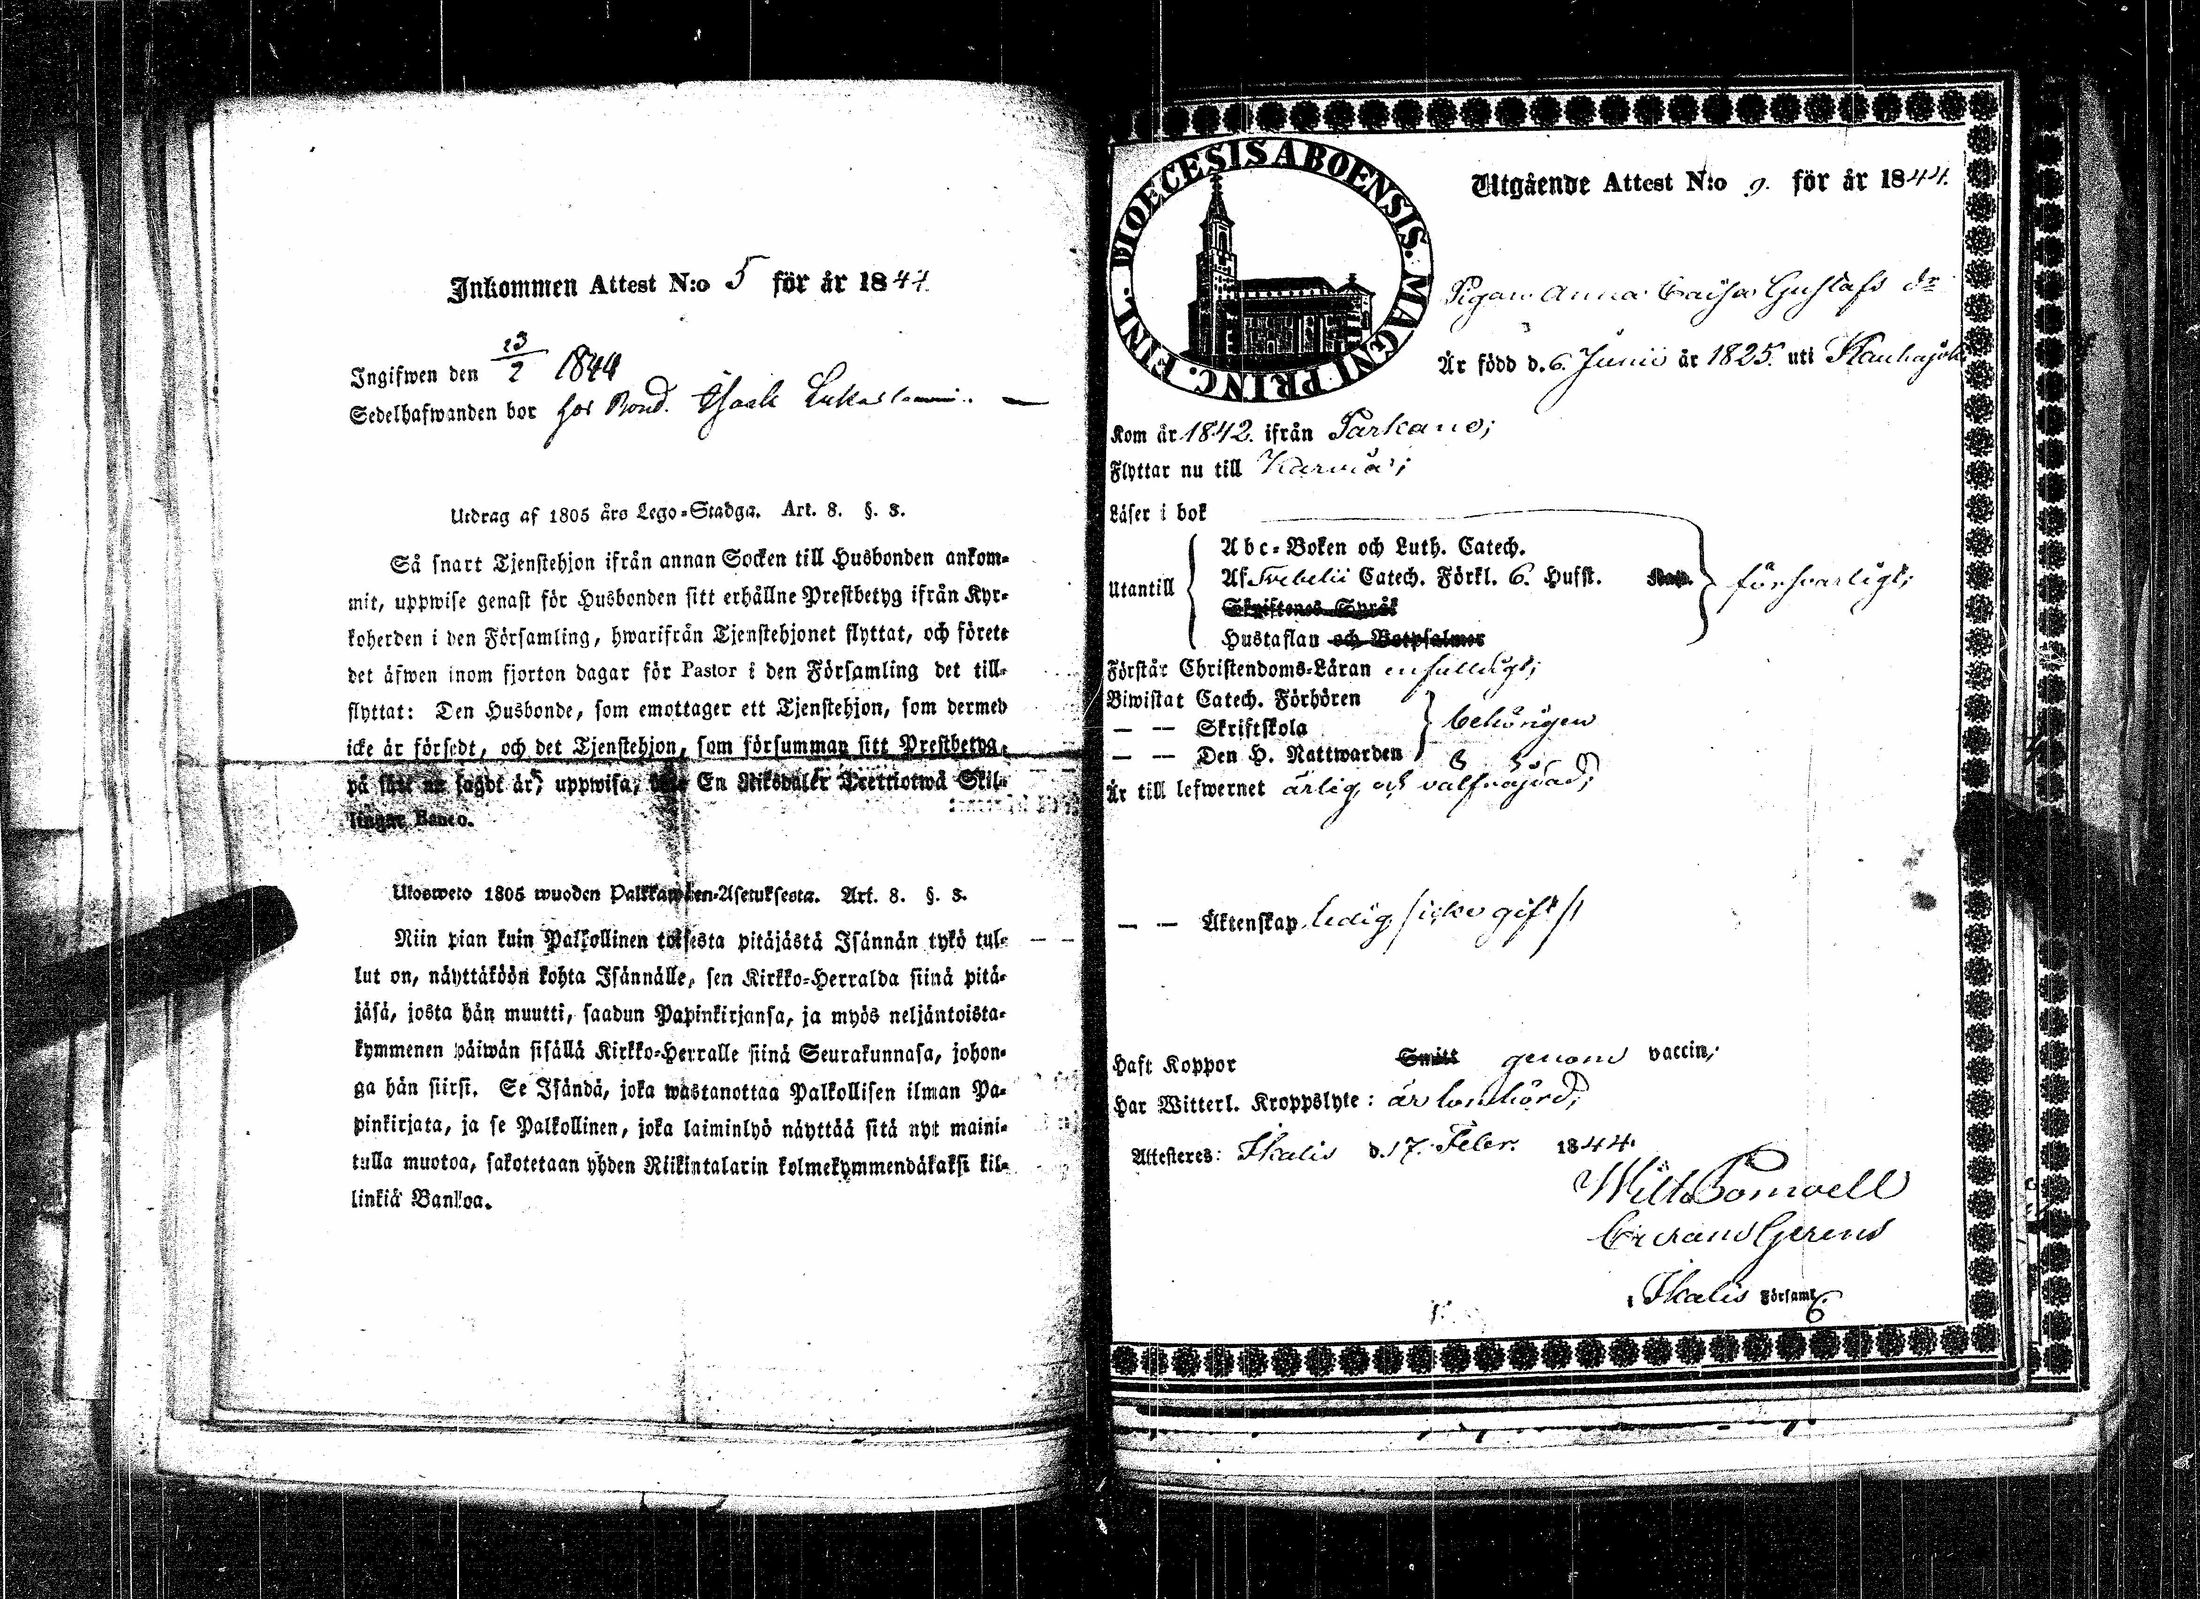 Inkommen Attest N:o 5 för år 1844.
Ingifwen den 23/2 1844
Sedelhafwanden bor hos Bond. Isaak
Utdrag af 1805 års Lego-Stadga. Art. 8. §. 8.
Så snart Tjenstehjon ifrån annan Socken till Husbonden ankom-
mit, uppwise genast för Husbonden sitt erhållne Prestbetyg ifrån Kyr-
koherden i den Församling, hwarifrån Tjenstehjonet flyttat, och förete
det äfwen inom fjorton dagar för Pastor i den Församling det till-
flyttat: Den Husbonde, som emottager ett Tjenstehjon, som dermed
icke är försedt, och det Tjenstehjon, som försummar sitt Prestbetyg,
på sätt nu sagdt är, uppwisa, En Riksdaler Trettiotwå Skil-
lingar Banco.
Ulosweto 1805 wuoden Palkkawäen-Asetuksesta. Art. 8. §. 8.
Niin pian kuin Palkollinen toisesta pitäjästä Isännän tykö tul-
lut on, näyttäköön kohta Isännälle, sen Kirkko-Herralda siinä pitä-
jäsä, josta hän muutti, saadun Papinkirjansa, ja myös neljäntoista-
kymmenen päiwän sisällä Kirkko-Herralle siinä Seurakunnasa, johon-
ga hän siirsi. Se Isändä, joka wastanottaa Palkollisen ilman Pa-
pinkirjata, ja se Palkollinen, joka laiminlyö näyttää sitä nyt maini-
tulla muotoa, sakotetaan yhden Riikintalarin kolmekymmendäkaksi kil-
linkiä Bankoa.
DIOECESIS ABOENSIS. MAGNI PRINC. FINL.
Utgående Attest N:o 9. för år 1844.
Pigan Anna Caisa Gustafs dr
Är född d. 6. Junii år 1825. uti Kauhajoki
Kom år 1842. ifrån Parkano;
Flyttar nu till Karvia;
Läser i bok
Abc-Boken och Luth. Catech.
Utantill Af Svebelii Catech. Förkl. 6. Hufst. försvarligt;
Skriftenes Språk
Hustaflan och Botpsalmer
Förstår Christendoms-Läran enfaldigt;
Biwistat Catech. Förhören
— — Skriftskola behörigen
— — Den H. Nattwarden
Är till lefwernet ärlig och välfräjdad;
— — Äktenskap ledig /: icke gift :/
Haft Koppor Smitt genom vaccin;
Har Witterl. Kroppslyte: är lomhörd;
Attesteres: Ikalis d. 17. Febr. 1844.
Wilh.
Curam Gerens
i Ikalis Församl.